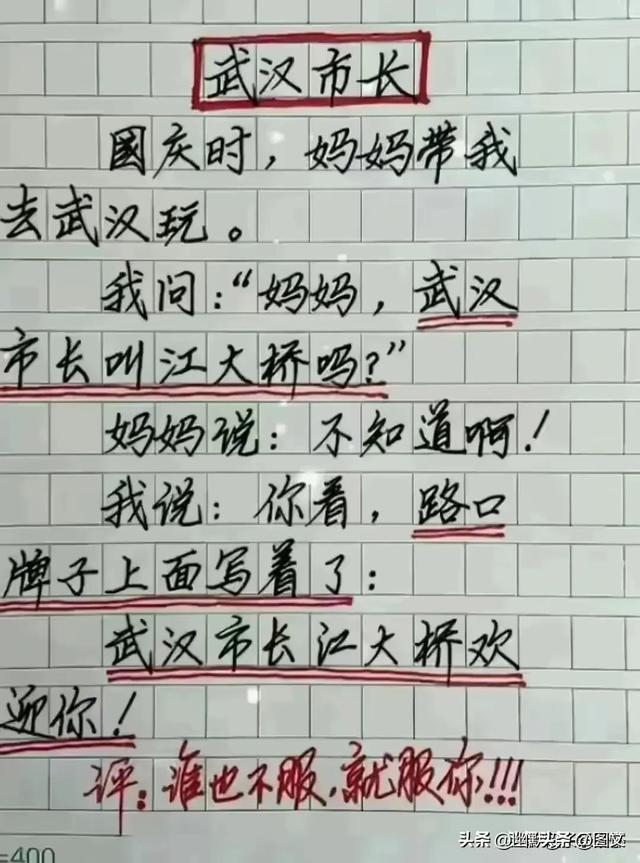 武汉市长
國庆时，妈妈带我
去武汉玩。
我问：“妈妈，武汉
市长叫江大桥吗？”
妈妈说：不知道啊！
我说：你看，路口
牌子上面写着了：
武汉市长江大桥欢
迎你！
评：谁也不服，就服你!!!
=400
头条 @图文